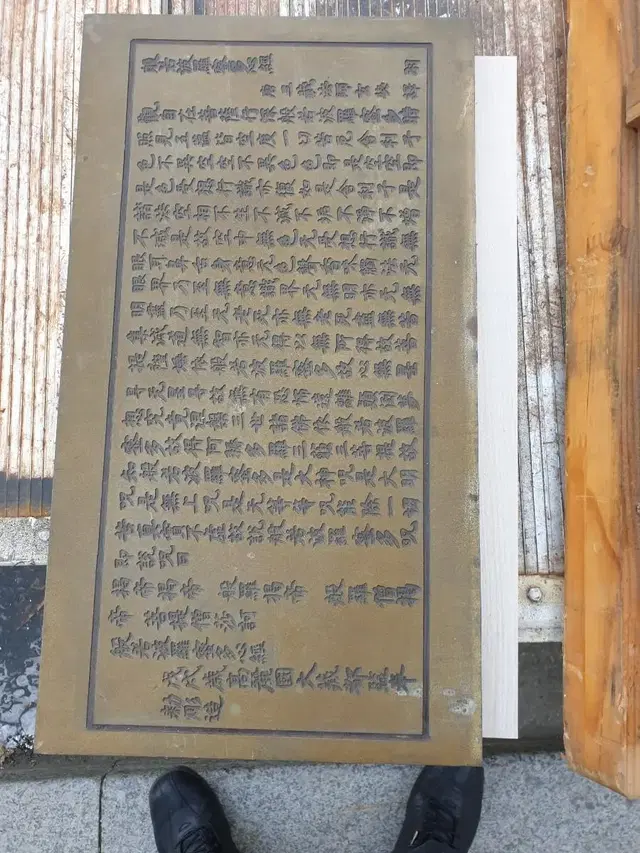 般若波羅蜜多心經 羽
唐三藏法師玄奘 譯
觀自在菩薩行深般若波羅蜜多時
照見五蘊皆空度一切苦厄舍利子
色不異空空不異色色即是空空即
是色受想行識亦復如是舍利子是
諸法空相不生不滅不垢不淨不增
不減是故空中無色无受想行識無
眼耳鼻舌身意无色聲香味觸法无
眼界乃至無意識界无無明亦无無
明盡乃至无老死亦無老死盡無苦
集滅道無智亦无得以無所得故菩
提薩埵依般若波羅蜜多故心無罣
㝵无罣㝵故無有恐怖遠離顚倒夢
想究竟涅槃三世諸佛依般若波羅
蜜多故得阿耨多羅三藐三菩提故
知般若波羅蜜多是大神呪是大明
呪是無上呪是无等等呪能除一切
苦眞實不虛故說般若波羅蜜多呪
即說呪曰
揭帝揭帝 般羅揭帝 般羅僧揭
帝 菩提僧莎訶
般若波羅蜜多心經
戊戌歲高麗國大藏都監奉
勅雕造